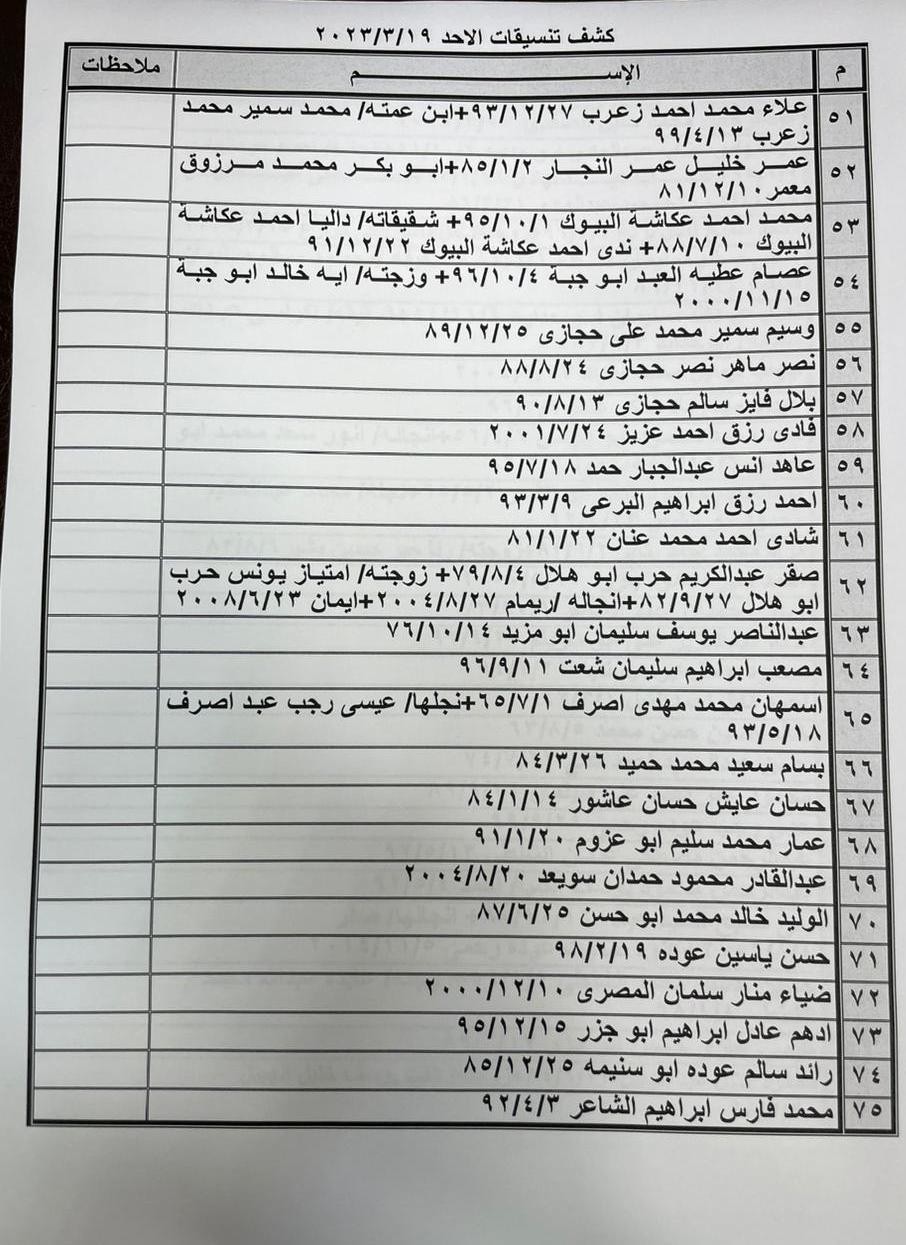 كشف تنسيقات الاحد ٢٠٢٣/٣/١٩
م الإســــــــــم ملاحظات
٥١ علاء محمد احمد زعرب ٩٣/١٢/٢٧+ابن عمته/ محمد سمير محمد
زعرب ٩٩/٤/١٣
٥٢ عمر خليل عمر النجار ٨٥/١/٢+ابو بكر محمد مرزوق
معمر ٨١/١٢/١٠
٥٣ محمد احمد عكاشة البيوك ٩٥/١٠/١+ شقيقاته/ داليا احمد عكاشة
البيوك ٨٨/٧/١٠+ ندى احمد عكاشة البيوك ٩١/١٢/٢٢
٥٤ عصام عطيه العبد ابو جبة ٩٦/١٠/٤+ وزجته/ ايه خالد ابو جبة
٢٠٠٠/١١/١٥
٥٥ وسيم سمير محمد على حجازى ٨٩/١٢/٢٥
٥٦ نصر ماهر نصر حجازى ٨٨/٨/٢٤
٥٧ بلال فايز سالم حجازى ٩٠/٨/١٣
٥٨ فادى رزق احمد عزيز ٢٠٠١/٧/٢٤
٥٩ عاهد انس عبدالجبار حمد ٩٥/٧/١٨
٦٠ احمد رزق ابراهيم البرعى ٩٣/٣/٩
٦١ شادى احمد محمد عنان ٨١/١/٢٢
٦٢ صقر عبدالكريم حرب ابو هلال ٧٩/٨/٤+ زوجته/ امتياز يونس حرب
ابو هلال ٨٢/٩/٢٧+انجاله /ريمام ٢٠٠٤/٨/٢٧+ايمان ٢٠٠٨/٦/٢٣
٦٣ عبدالناصر يوسف سليمان ابو مزيد ٧٦/١٠/١٤
٦٤ مصعب ابراهيم سليمان شعت ٩٦/٩/١١
٦٥ اسمهان محمد مهدى اصرف ٦٥/٧/١+نجلها/ عيسى رجب عبد اصرف
٩٣/٥/١٨
٦٦ بسام سعيد محمد حميد ٨٤/٣/٢٦
٦٧ حسان عايش حسان عاشور ٨٤/١/١٤
٦٨ عمار محمد سليم ابو عزوم ٩١/١/٢٠
٦٩ عبدالقادر محمود حمدان سويعد ٢٠٠٤/٨/٢٠
٧٠ الوليد خالد محمد ابو حسن ٨٧/٦/٢٥
٧١ حسن ياسين عوده ٩٨/٢/١٩
٧٢ ضياء منار سلمان المصرى ٢٠٠٠/١٢/١٠
٧٣ ادهم عادل ابراهيم ابو جزر ٩٥/١٢/١٥
٧٤ رائد سالم عوده ابو سنيمه ٨٥/١٢/٢٥
٧٥ محمد فارس ابراهيم الشاعر ٩٢/٤/٣